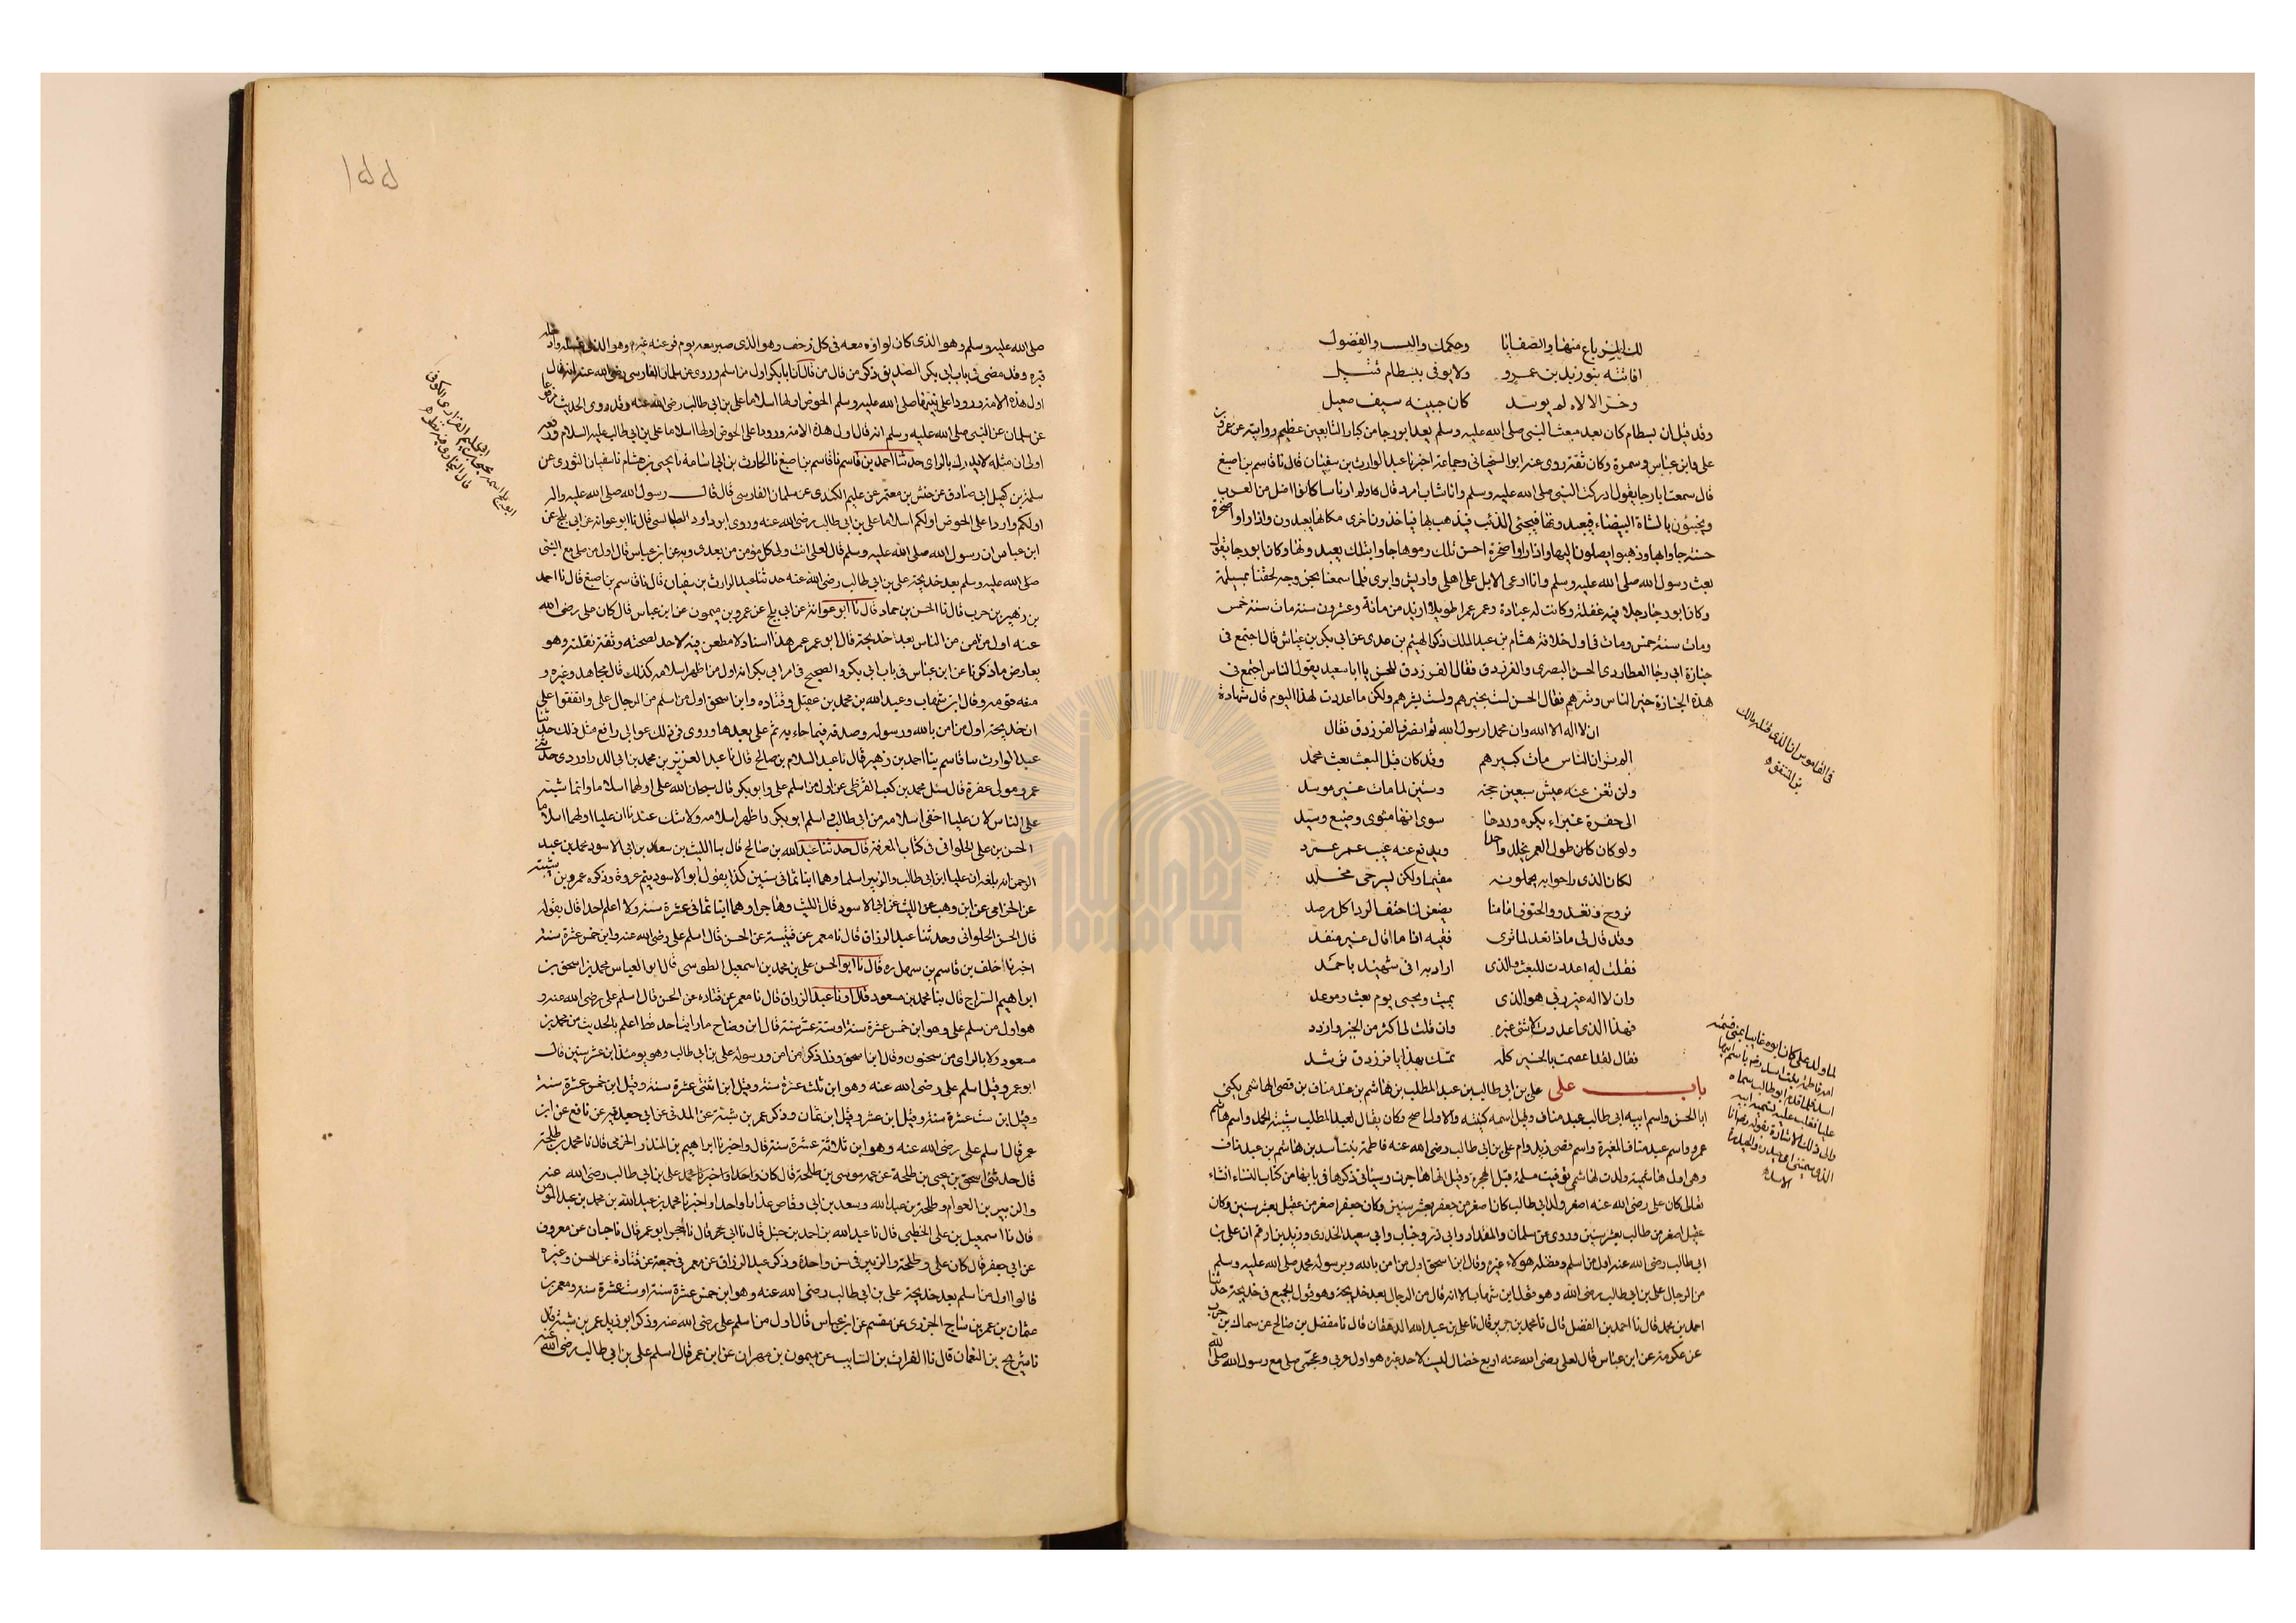 لك المرباع منها والصفايا وحكمك والنسـ والفضول
افاتته بنو زيد بن عمرو ولا يوفى ببسطام قتيل
وخر الالاه لم يوسد كان جبينه سيف صقيل
وقد قيل ان بسطام كان بعد مبعث النبى صلى الله عليه وسلم يعد ابو رجا من كبار التابعين عظيم روايته عن عمر
على وابن عباس وسمرة وكان ثقة روى عنه ايوب السختيانى وجماعة اخبرنا عبد الوارث بن سفيان قال نا قاسم بن اصبغ
قال سمعت ابا رجا يقول ادركت النبى صلى الله عليه وسلم وانا شاب امرد قال ولم ار ناسا كانوا اضل من العرب
ويجيئون بالشاة البيضاء فيعبدونها فيجئ الذئب فيذهب بها فياخذون اخرى مكانها يعبدون واذا راوا صخرة
حسنة جاوا بها وذهبوا يصلون اليها واذا راوا صخرة احسن تلك رموها جاوا بتلك يعبدونها وكان ابو رجا يقول
بعث رسول الله صلى الله عليه وسلم وانا ارعى الابل على اهلى واريش وابرى فلما سمعنا بخروجه لحقنا بمسيلمة
وكان ابو رجا رجلا فيه غفلة وكانت له عبادة وعمر عمرا طويلا ازيد من مائة وعشرون سنة مات سنة خمس
ومات سنة خمس ومات فى اول خلافة هشام بن عبد الملك ذكر الهيثم بن عدى عن ابى بكر بن عياش قال اجتمع فى
جنازة ابى رجا العطاردى الحسن البصرى والفرزدق فقال الفرزدق للحسن يا ابا سعيد يقول الناس اجتمع فى
هذه الجنازة خير الناس وشرهم فقال الحسن لست بخيرهم ولست بشرهم ولكن ما اعددت لهذا اليوم قال شهادة
ان لا اله الا الله وان محمدا رسول الله ثم انصرف الفرزدق فقال
الم تر ان الناس مات كبيرهم وقد كان قبل البعث بعث محمد
ولن تغن عنه عيش سبعين حجة وستين لما مات غير موسد
الى حفرة غبراء يكره وردها سوى انها مثوى وضيع وسيد
ولو كان كان طول العمر يخلد واحدا ويدفع عنه عيب عمر عمرد
لكان الذى راحوا به يحملونه مقيما ولكن ليس حى مخلد
نروح ونغدو والحتوف امامنا يضعن لنا حتف الردا كل مرصد
وقد قال لى ماذا تعد لما ترى فقيه اذا ما قال غير مفند
فقلت له اعددت للبعث والذى اراد به انى شهيد باحمد
وان لا اله غير ربى هو الذى يميت ويحيى يوم بعث وموعد
فهذا الذى اعددت لا شئ غيره وان قلت لى اكثر من الخير وازدد
فقال لقد اعصمت بالخير كله تمسك بهذا يا فرزدق ترشد
باب على على بن ابى طالب بن عبد المطلب بن هاشم بن عبد مناف بن قصى الهاشمى يكنى
ابا الحسن واسم ابيه ابى طالب عبد مناف وقيل اسمه كنيته والاول اصح وكان يقال لعبد المطلب شيبة الحمد واسم هاشم
عمرو واسم عبد مناف المغيرة واسم قصى زيد وام على بن ابى طالب رضى الله عنه فاطمة بنت اسد بن هاشم بن عبد مناف
وهى اول هاشمية ولدت لهاشمى توفيت مسلمة قبل الهجرة وقيل انها هاجرت وسياتى ذكرها فى بابها من كتاب النساء انشاء
تعالى كان على رضى الله عنه اصغر ولد ابى طالب كان اصغر من جعفر بعشر سنين وكان جعفر اصغر من عقيل بعشر سنين وكان
عقيل اصغر من طالب بعشر سنين وروى عن سلمان والمقداد وابى ذر وخباب وابى سعيد الخدرى وزيد بن ارقم ان على بن
ابى طالب رضى الله عنه اول من اسلم وفضله هولاء غيره وقال ابن اسحق اول من امن بالله وبرسوله محمد صلى الله عليه وسلم
من الرجال على بن ابى طالب رضى الله وهو قول ابن شهاب الا انه قال من الرجال بعد خديجة وهو قول الجميع فى خديجة حدثنا
احمد بن محمد قال نا احمد بن الفضل قال نا محمد بن جرير قال نا على بن عبد الله الدهقان قال نا مفضل بن صالح عن سماك بن حرب
عن عكرمة عن ابن عباس قال لعلى رضى الله عنه اربع خصال ليست لاحد غيره هو اول عربى وعجمى صلى مع رسول الله صلى الله
فى القاموس ان الذى قتله مالك
بن المنتفق
لما ولد على كان ابوه غايبا
امه فاطمة بنت اسد باسم ابيها
اسد فلما قدم ابو طالب سماه
عليا فغلب عليه تسميه ابيه
والى ذلك الاشارة بقوله رضى انا
الذى سمتنى امى حيدره والحيدرة
الاسد
١٥٥
صلى الله عليه وسلم وهو الذى كان لواؤه معه فى كل زحف وهو الذى صبر معه يوم فر عنه غيره وهو الذى غسله وادخله
قبره وقد مضى فى باب ابى بكر الصديق ذكر من قال من قال ان ابا بكر اول من اسلم وروى عن سلمان الفارسى رضى الله عنه انه قال
اول هذه الامة ورودا على نبيها صلى الله عليه وسلم الحوض اولها اسلاما على بن ابى طالب رضى الله عنه وقد روى الحديث مرفوعا
عن سلمان عن النبى صلى الله عليه وسلم انه قال اول هذه الامة ورودا على الحوض اولها اسلاما على بن ابى طالب عليه السلام ورفعه
اولى ان مثله لا يدرك بالراى حدثنا احمد بن قاسم نا قاسم بن اصبغ نا الحارث بن ابى اسامة نا يحيى بن هشام نا سفيان الثورى عن
سلمة بن كهيل ابى صادق عن حنش بن معتمر عن عليم الكندى عن سلمان الفارسى قال قال رسول الله صلى الله عليه واله
اولكم واردا على الحوض اولكم اسلاما على بن ابى طالب رضى الله عنه وروى ابو داود الطيالسى قال نا ابو عوانة عن ابى بلج عن
ابن عباس ان رسول الله صلى الله عليه وسلم قال لعلى انت ولى كل مؤمن من بعدى وبه عن ابن عباس قال اول من صلى مع النبى
صلى الله عليه وسلم بعد خديجة على بن ابى طالب رضى الله عنه حدثنا عبد الوارث بن سفيان قال نا قاسم بن اصبغ قال نا احمد
بن زهير بن حرب قال نا الحسن بن حماد قال نا ابو عوانة عن ابى بلج عن عمرو بن ميمون عن ابن عباس قال كان على رضى الله
عنه اول من امن من الناس بعد خديجة قال ابو عمر عمر هذا اسناد لا مطعن فيه لاحد لصحته وثقة نقلته وهو
يعارض ما ذكرنا عن ابن عباس فى باب ابى بكر والصحيح فى امر ابى بكر انه اول من اظهر اسلامه كذلك قال مجاهد وغيره و
منعه قومه وقال ابن شهاب وعبد الله بن محمد بن عقيل وقتاده وابن اسحق اول من اسلم من الرجال على واتفقوا على
ان خديجة اول من امن بالله ورسوله وصدقه فيما جاء به ثم على بعدها وروى فى ذلك عن ابى رافع مثل ذلك حدثنا
عبد الوارث نا قاسم نا احمد بن زهير قال نا عبد السلام بن صالح قال نا عبد العزيز بن محمد بن ابى الدراوردى حدثنى
عمر ومولى عفرة قال سئل محمد بن كعب القرظى عن اول من اسلم على وابو بكر قال سبحان الله على اولهما اسلاما وانما شبه
على الناس لان عليا اخفى اسلامه من ابى طالب واسلم ابو بكر واظهر اسلامه ولا شك عندنا ان عليا اولهما اسلاما
الحسن بن على الحلوانى فى كتاب المعرفة قال حدثنا عبد الله بن صالح قال نا الليث بن سعد بن ابى الاسود محمد بن عبد
الرحمن انه بلغه ان عليا ابن ابى طالب والزبير اسلما وهما ابنا ثمانى سنين كذا يقول ابو الاسود يتيم عروة وذكره عمر بن شبة
عن الحزامى عن ابن وهب عن الليث عن ابى الاسود قال الليث وهاجرا وهما ابنا ثمانى عشرة سنة ولا اعلم احدا قال بقوله
قال الحسن الحلوانى وحدثنا عبد الرزاق قال نا معمر عن قتادة عن الحسن قال اسلم على رضى الله عنه وابن خمس عشرة سنة
اخبرنا خلف بن قاسم بن سهل ره قال نا ابو الحسن على بن محمد بن اسمعيل الطوسى قال ابو العباس محمد بن اسحق بن
ابراهيم السراج قال نا محمد بن مسعود قال نا عبد الرزاق قال نا معمر عن قتاده عن الحسن قال اسلم على رضى الله عنه و
هو اول من سلم على وهو ابن خمس عشرة سنة او ستة عشر سنة قال ابن وضاح ما رايت احد قط اعلم بالحديث من محمد بن
مسعود ولا بالراى من سحنون وقال ابن اسحق وذكر من امن ورسوله على بن ابى طالب وهو يومئذ ابن عشر سنين قال
ابو عمر وقيل اسلم على رضى الله عنه وهو ابن ثلث عشرة سنة وقيل ابن اثنتى عشرة سنة وقيل ابن خمس عشرة سنة
وقيل ابن ست عشرة سنة وقيل ابن عشر وقيل ابن ثمان وذكر عمر بن شبة عن المدنى عن ابى جعدية عن نافع عن ابن
عمر قال اسلم على رضى الله عنه وهو ابن ثلاثة عشرة سنة قال واخبرنا ابراهيم بن المنذر الحزمى قال نا محمد بن طلحة
قال حدثنى اسحق بن يحيى بن طلحة عن عمه موسى بن طلحة قال كان واحدا على بن ابى طالب رضى الله عنه
والزبير بن العوام وطلحة بن عبد الله وسعد بن ابى وقاص عذاما واحدا واخبرنا محمد بن عبد الله بن محمد بن عبد المؤمن
قال نا اسمعيل بن على الخطبى قال نا عبد الله بن احمد بن حنبل قال نا ابى قال نا حجر ابو عمر قال نا حبان عن معروف
عن ابى جعفر قال كان على وطلحة والزبير فى سن واحدة وذكر عبد الرزاق عن معمر فى جمعة عن قتادة عن الحسن وغيره
قالوا اول من اسلم بعد خديجة على بن ابى طالب رضى الله عنه وهو ابن خمس عشرة سنة او ست عشرة سنة ومعمر بن
عثمان بن عمر بن ساج الجزرى عن مقسم عن ابن عباس قال اول من اسلم على رضى الله عنه وذكر ابو زيد عمر بن شبة قال
نا شريح بن النعمان قال نا الفرات بن السايب عن ميمون بن مهران عن ابن عمر قال اسلم على بن ابى طالب رضى الله عنه
ابو بلج اسمه
الفزارى الكوفى